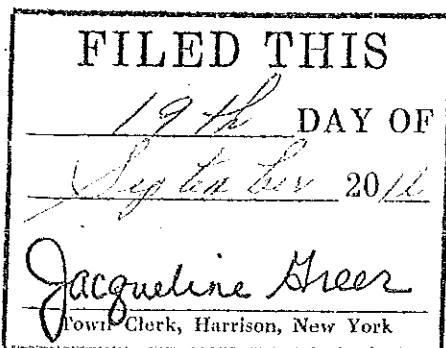 FILED THIS
19th DAY OF
September 20
Jacqueline Greer
Town Clerk, Harrison, New York